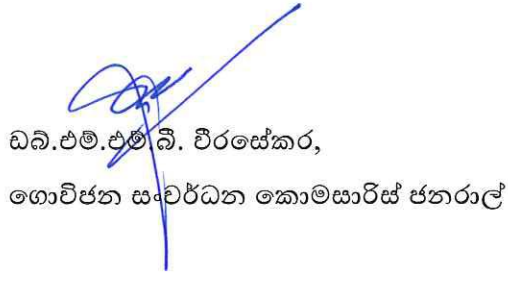 ඩබ්.එම්.එම්.බී. වීරසේකර,
ගොවිජන සංවර්ධන කොමසාරිස් ජනරාල්